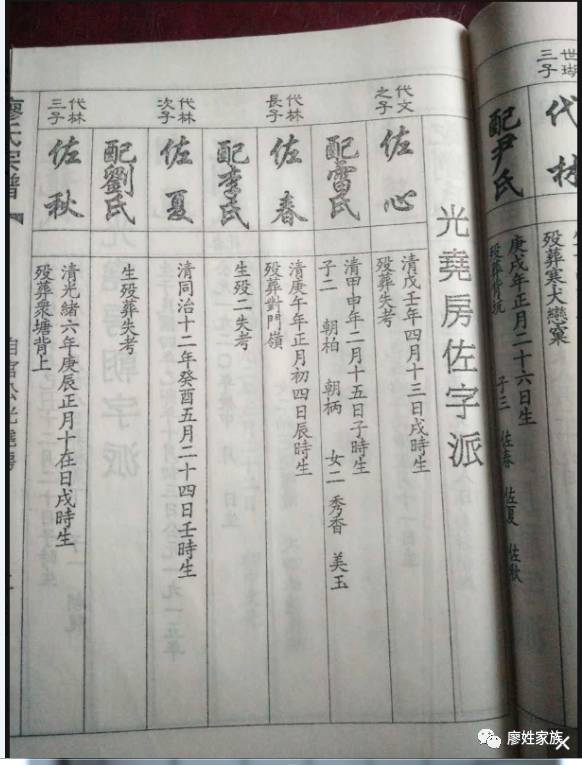 世瑚
三子
代林
歿葬寒大戀窠
配尹氏
庚戌年正月二十六日生
子三 佐春 佐夏 佐秋
光堯房佐字派
代文
之子
佐心
清戊壬年四月十三日戌時生
歿葬失考
配雷氏
清甲申年二月十五日子時生
子二 朝柏 朝柄 女二 秀香 美玉
代林
長子
佐春
清庚午年正月初四日辰時生
歿葬對門嶺
配李氏
生歿二失考
代林
次子
佐夏
清同治十二年癸酉五月二十四日壬時生
配劉氏
生歿葬失考
代林
三子
佐秋
清光緒六年庚辰正月十在日戌時生
歿葬衆塘背上
廖氏宗譜
廖姓家族